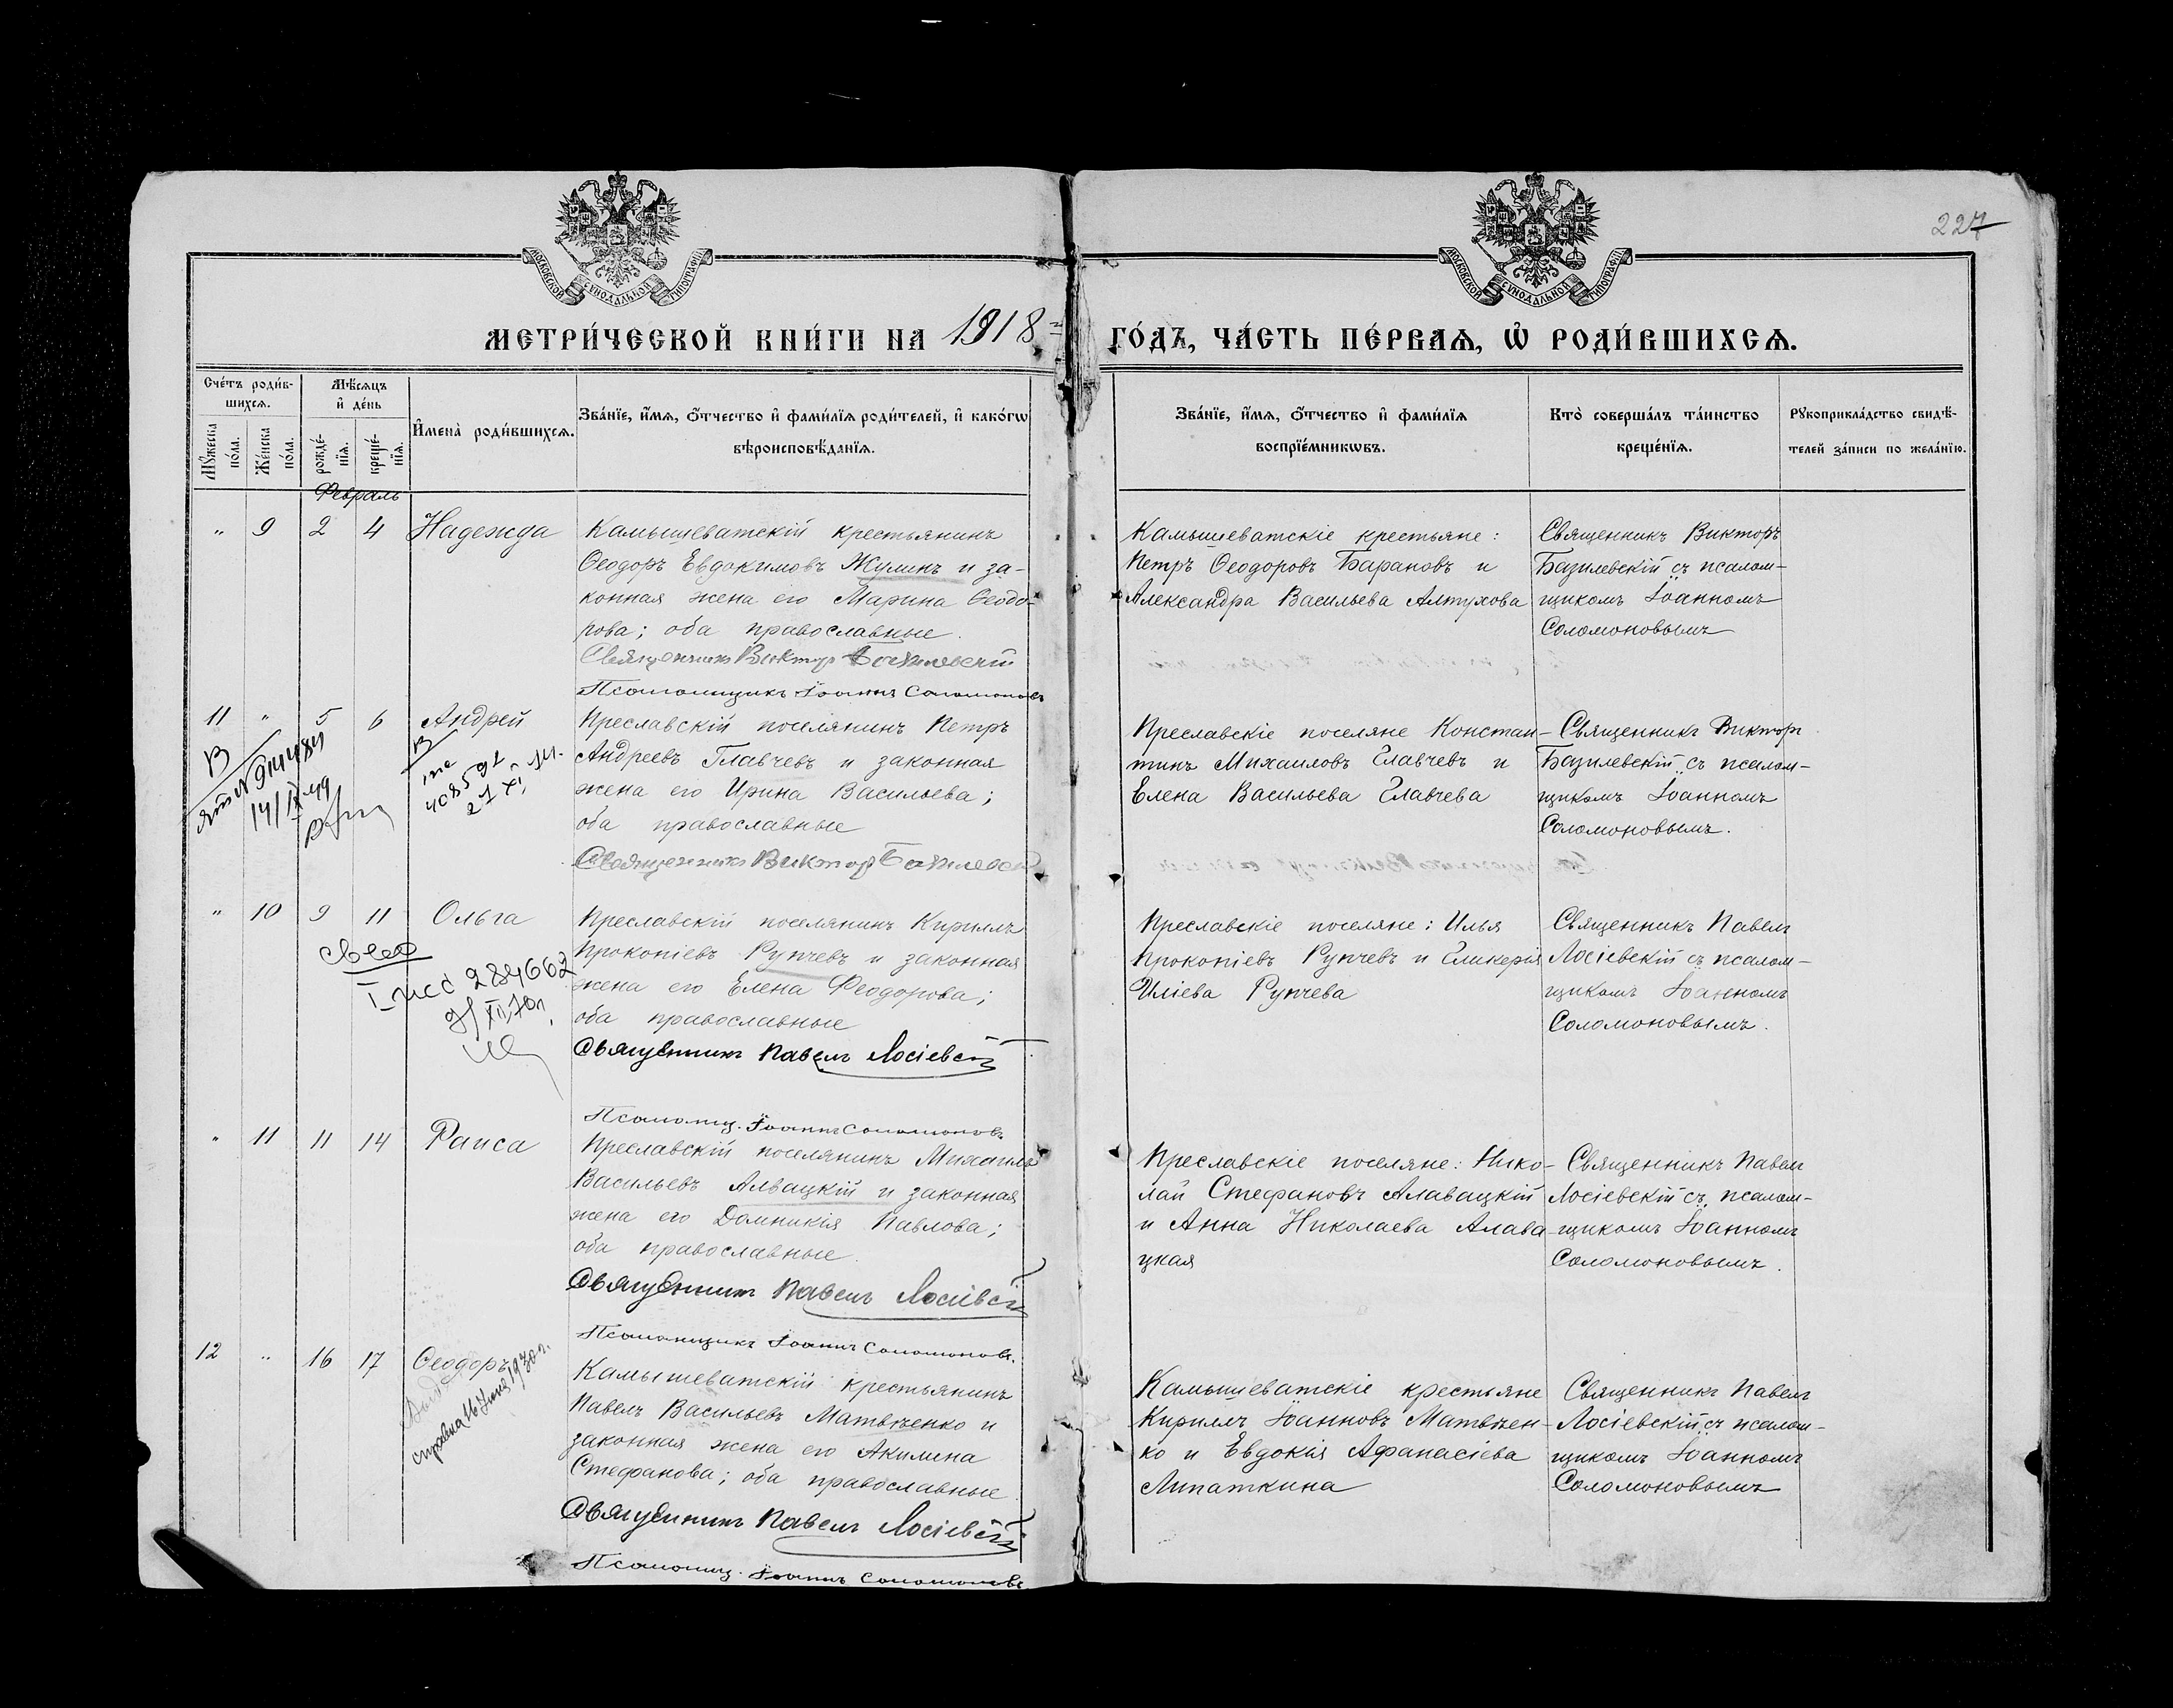 227
МОСКОВСКОЙ СѴНОДАЛЬНОЙ ТИПОГРАФІИ
МОСКОВСКОЙ СѴНОДАЛЬНОЙ ТИПОГРАФІИ
МЕТРИ́ЧЕСКОЙ КНИ́ГИ НА 1918 ГО́ДЪ, ЧА́СТЬ ПЕ́РВАѦ, Ѡ҆ РОДИ́ВШИХСѦ.
Сче́тъ роди́в-
шихсѧ.
Мꙋ́жеска по́ла.
Же́нска по́ла.
Мѣ́сѧцъ
и҆ де́нь
рожде́-
нїѧ.
креще́-
нїѧ.
И҆мена̀ роди́вшихсѧ.
Зва́нїе, и҆́мѧ, ѻ҆́тчество и҆ фами́лїѧ роди́телей, и҆ како́гѡ
вѣроисповѣ́данїѧ.
Зва́нїе, и҆́мѧ, ѻ҆́тчество и҆ фами́лїѧ
воспрїе́мникѡвъ.
Кто̀ соверша́лъ та́инство
креще́нїѧ.
Рꙋкоприкла́дство свидѣ́-
телей за́писи по жела́нїю.
Февраль
" 9 2 4 Надежда
Камышеватскій крестьянинъ
Ѳеодоръ Евдокимовъ Жулинъ и за-
конная жена его Марина Ѳеодо-
рова; оба православные.
Священникъ Викторъ Базилевскій
Псаломщикъ Іоаннъ Соломоновъ
Камышеватскіе крестьяне:
Петръ Ѳеодоровъ Барановъ и
Александра Васильева Алтухова
Священникъ Викторъ
Базилевскій съ псалом-
щикомъ Іоанномъ
Соломоновымъ
11 " 5 6 Андрей
Преславскій поселянинъ Петръ
Андреевъ Главчевъ и законная
жена его Ирина Васильева;
оба православные
Священникъ Викторъ Базилевскій
Преславскіе поселяне Констан-
тинъ Михаиловъ Главчевъ и
Елена Васильева Главчева
Священникъ Викторъ
Базилевскій съ псалом-
щикомъ Іоанномъ
Соломоновымъ.
В
14/IX 49
В
408592
" 10 9 11 Ольга
Преславскій поселянинъ Кириллъ
Прокопіевъ Рупчевъ и законная
жена его Елена Феодорова;
оба православные
Священникъ Павелъ Лосіевскій
Псаломщ. Іоаннъ Соломоновъ
Преславскіе поселяне: Илья
Прокопіевъ Рупчевъ и Гликерія
Иліева Рупчева
Священникъ Павелъ
Лосіевскій съ псалом-
щикомъ Іоанномъ
Соломоновымъ.
284662
" 11 11 14 Раиса
Преславскій поселянинъ Михаилъ
Васильевъ Алвацкій и законная
жена его Домникія Павлова;
оба православные.
Священникъ Павелъ Лосіевскій
Псаломщикъ Іоаннъ Соломоновъ.
Преславскіе поселяне: Нико-
лай Стефановъ Алавацкій
и Анна Николаева Алава-
цкая
Священникъ Павелъ
Лосіевскій съ псалом-
щикомъ Іоанномъ
Соломоновымъ.
12 " 16 17 Ѳеодоръ
справка 16 Июня 1930 г.
Камышеватскій крестьянинъ
Павелъ Васильевъ Матвѣенко и
законная жена его Акилина
Стефанова; оба православные
Священникъ Павелъ Лосіевскій
Псаломщ. Іоаннъ Соломоновъ
Камышеватскіе крестьяне
Кириллъ Іоанновъ Матвѣен-
ко и Евдокія Афанасіева
Липаткина
Священникъ Павелъ
Лосіевскій съ псалом-
щикомъ Іоанномъ
Соломоновымъ